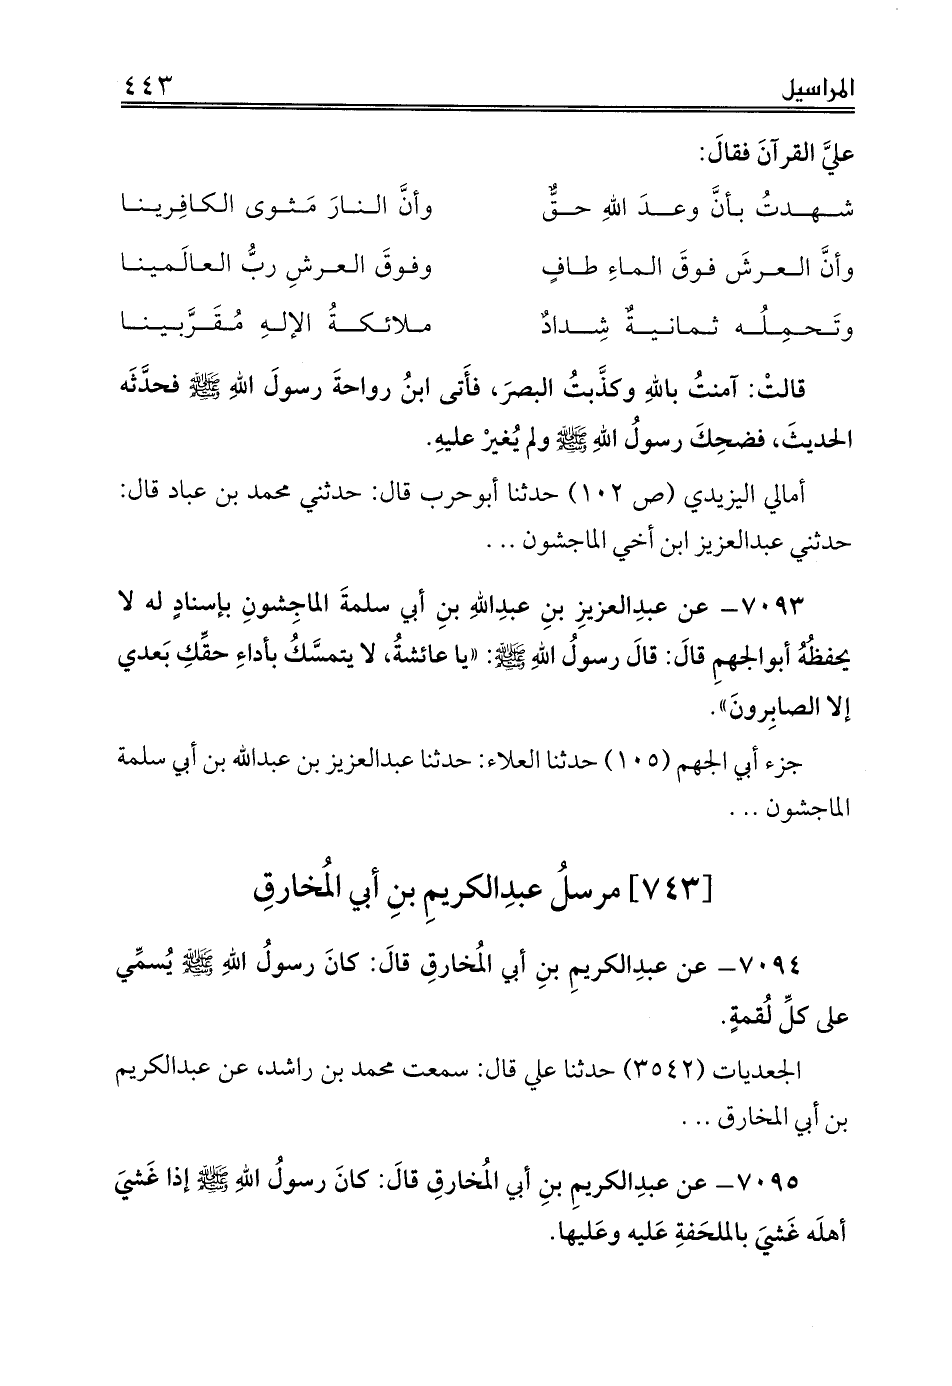 المراسيل ٤٤٣
عليَّ القرآنَ فقالَ:
شهدتُ بأنَّ وعدَ اللهِ حقٌّ وأنَّ النارَ مَثوى الكافِرينا
وأنَّ العرشَ فوقَ الماءِ طافٍ وفوقَ العرشِ ربُّ العالَمينا
وتَحمِلُه ثمانيةٌ شِدادٌ ملائكةُ الإلهِ مُقَرَّبينا
قالتْ: آمنتُ باللهِ وكذَّبتُ البصرَ، فأَتى ابنُ رواحةَ رسولَ اللهِ ﷺ فحدَّثَه
الحديثَ، فضحِكَ رسولُ اللهِ ﷺ ولم يُغيرْ عليهِ.
أمالي اليزيدي (ص ١٠٢) حدثنا أبوحرب قال: حدثني محمد بن عباد قال:
حدثني عبدالعزيز ابن أخي الماجشون ...
٧٠٩٣- عن عبدِالعزيزِ بنِ عبدِاللهِ بنِ أبي سلمةَ الماجِشونِ بإسنادٍ له لا
يحفظُهُ أبوالجهمِ قالَ: قالَ رسولُ اللهِ ﷺ: «يا عائشةُ، لا يتمسَّكُ بأداءِ حقِّكِ بَعدي
إلا الصابِرونَ».
جزء أبي الجهم (١٠٥) حدثنا العلاء: حدثنا عبدالعزيز بن عبدالله بن أبي سلمة
الماجشون ...
[٧٤٣] مرسلُ عبدِالكريمِ بنِ أبي المُخارقِ
٧٠٩٤- عن عبدِالكريمِ بنِ أبي المُخارقِ قالَ: كانَ رسولُ اللهِ ﷺ يُسمِّي
على كلِّ لُقمةٍ.
الجعديات (٣٥٤٢) حدثنا علي قال: سمعت محمد بن راشد، عن عبدالكريم
بن أبي المخارق ...
٧٠٩٥- عن عبدِالكريمِ بنِ أبي المُخارقِ قالَ: كانَ رسولُ اللهِ ﷺ إذا غَشيَ
أهلَه غَشيَ بالملحَفةِ عَليه وعَليها.